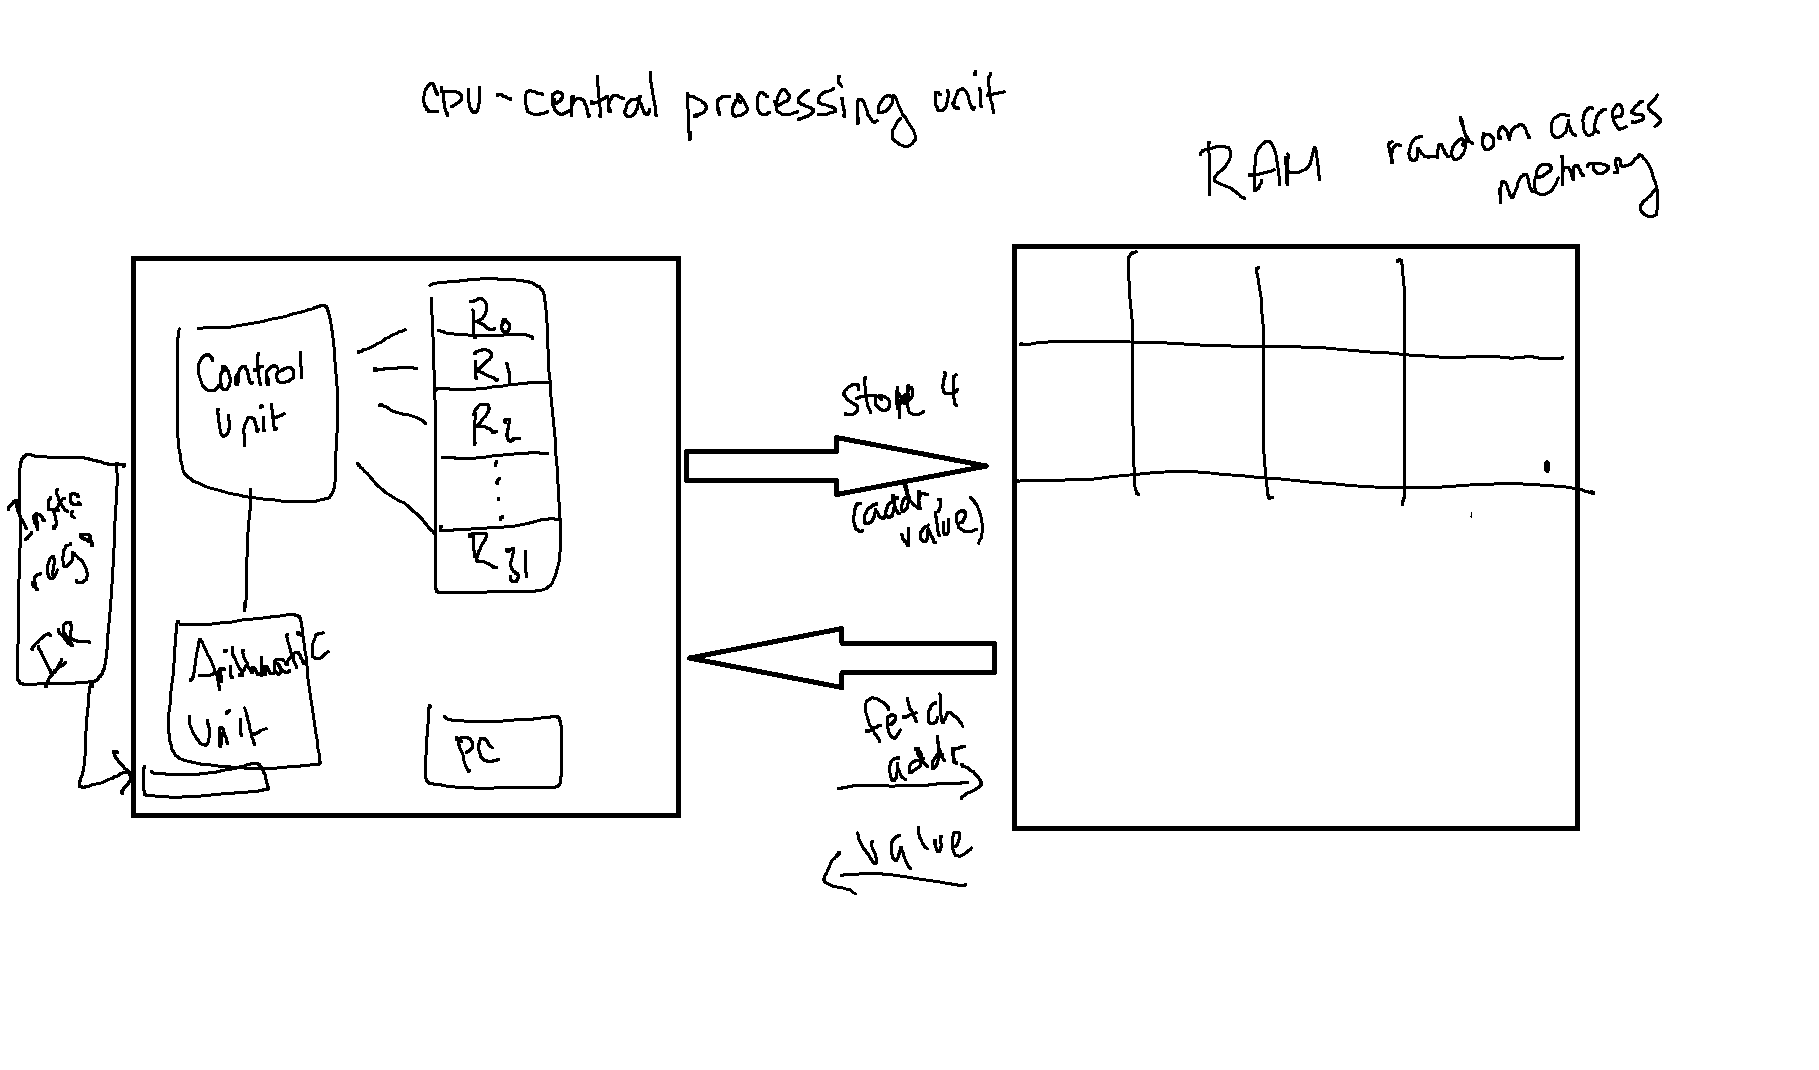 CPU - central processing unit
RAM
random access
memory
Control
Unit
R0
R1
R2
R31
Instr
reg
IR
Arithmatic
Unit
PC
store 4
(addr,
value)
fetch
addr
value